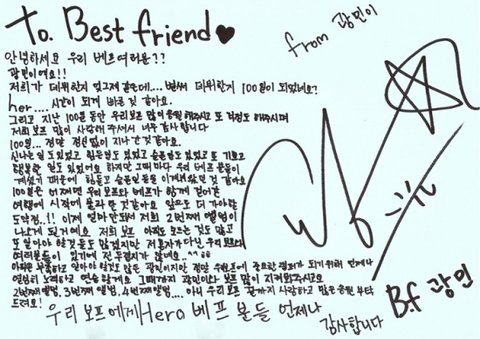 To. Best friend♥
from 광민이
안녕하세요 우리 베프여러분??
광민이에요!!
저희가 데뷔한지 엊그제 같은데.... 벌써 데뷔한지 100일이 되었네요?
her.... 시간이 되게 빠른 것 같아요.
그리고 지난 100일 동안 우리 보프 많이 응원해주시고 또 걱정도 해주시며
저희 보프 많이 사랑해 주셔서 너무 감사합니다
100일... 정말 정신없이 지나간 것 같아요.
신나는 일도 있었고 힘든일도 있었고 슬픈일도 있었고 또 기쁘고
행복한 일도 있었어요 하지만 그때마다 우리 베프 분들이
계셨기 때문에 힘들고 슬픈일들을 이겨냈었던 것 같아요
100일은 어쩌면 우리 보프와 베프가 함께 걸어갈
여행에 시작에 불과한 것 같아요 앞으로 더 나아갈
도약점..!! 이제 얼마 안돼서 저희 2번째 앨범이
나오게 될거에요 저희 보프 아직 모르는 것도 많고
또 알아야 할 것들도 많겠지만 저 혼자가 아닌 우리 보프와
여러분들이 있기에 전 두렵지가 않네요..^^
아직은 부족하고 알아야 할것도 많은 광민이지만 정말 우리 보프에 중요한 멤버가 되기 위해서 언제나
열심히 노력하고 연습할게요 그때까지 광민이와 보프 많이 지켜봐주시고요
2번째 앨범, 3번째 앨범, 4번째 앨범.... 아니 우리 보프 끝까지 사랑하고 많은 응원 부탁
드려요!
우리 보프에게 Hero 베프 분들 언제나
감사합니다
B.f 광민